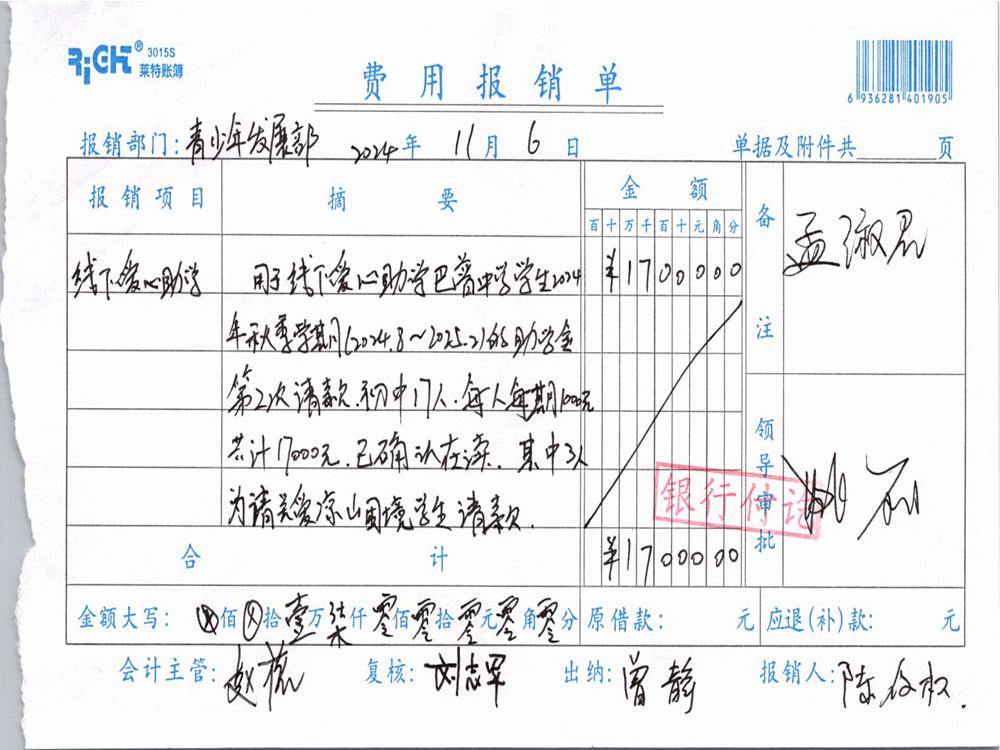 RiGHT® 3015S
莱特账簿
费用报销单
6 936281 401905
报销部门：青少年发展部 2024年 11月 6日 单据及附件共 页
报销项目 摘要 金额 备注
百十万千百十元角分
孟淑君
线下爱心助学 用于线下爱心助学巴普中学学生2024 ¥1700000
年秋季学期(2024.8～2025.2)的助学金
第2次请款.初中17人.每人每期1000元
共计17000元.已确认在读.其中3人
为请关爱凉山困境学生请款.
领导审批
银行付讫
合计 ¥1700000
金额大写：⊗佰⊗拾壹万柒仟零佰零拾零元零角零分 原借款： 元 应退(补)款： 元
会计主管：赵 复核：刘志军 出纳：曾静 报销人：陈